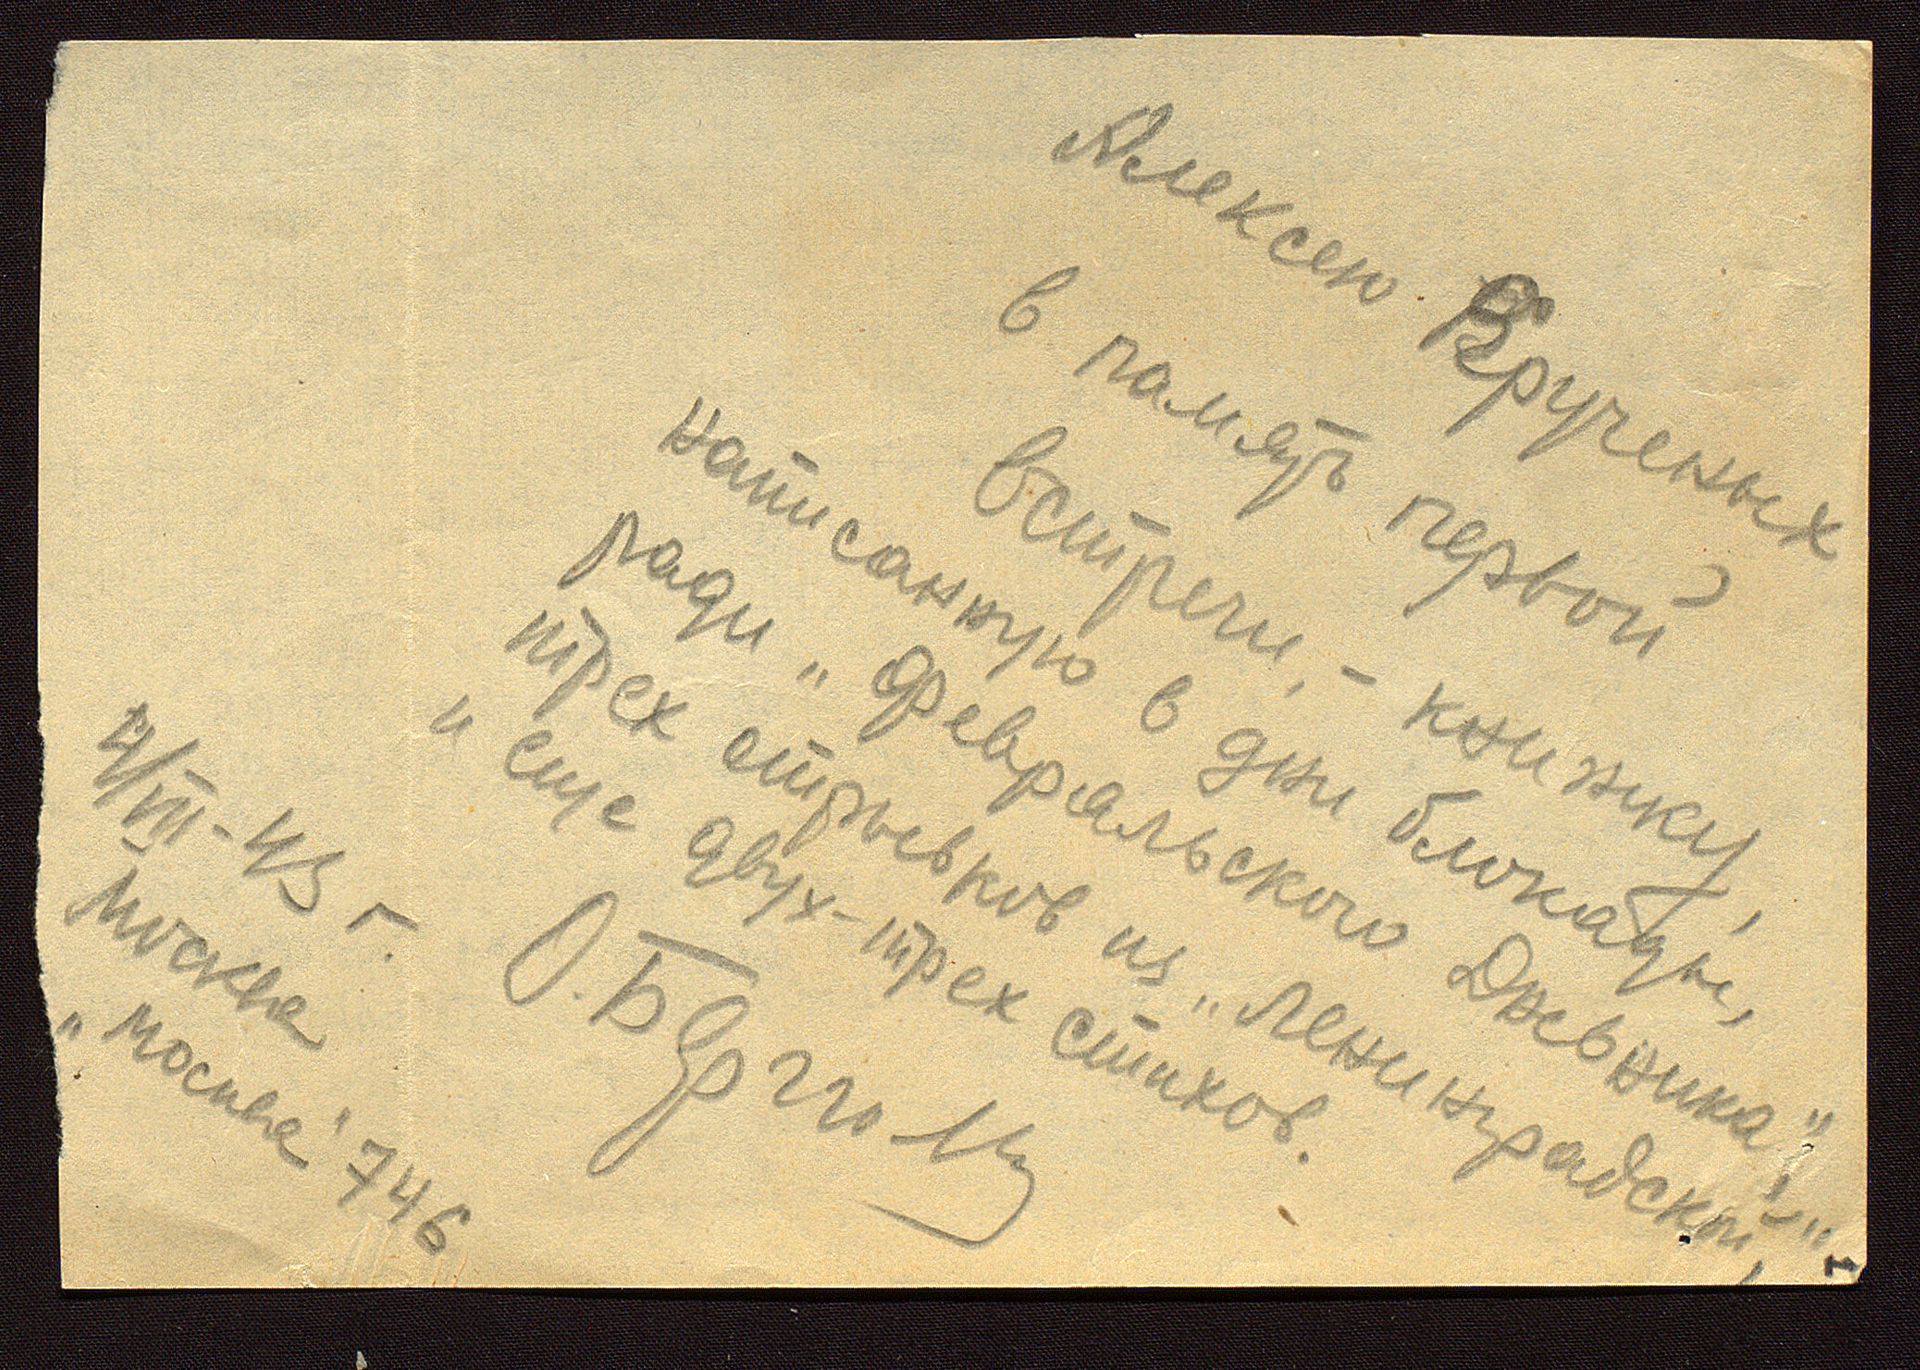 Алексею Крученых
в память первой
встречи, – книжку,
написанную в дни блокады,
ради „Февральского Дневника",
трех отрывков из „Ленинградской"
и еще двух-трех стихов.
О. Берггольц
4/VIII-43 г.
Москва
„Москва" 746
1